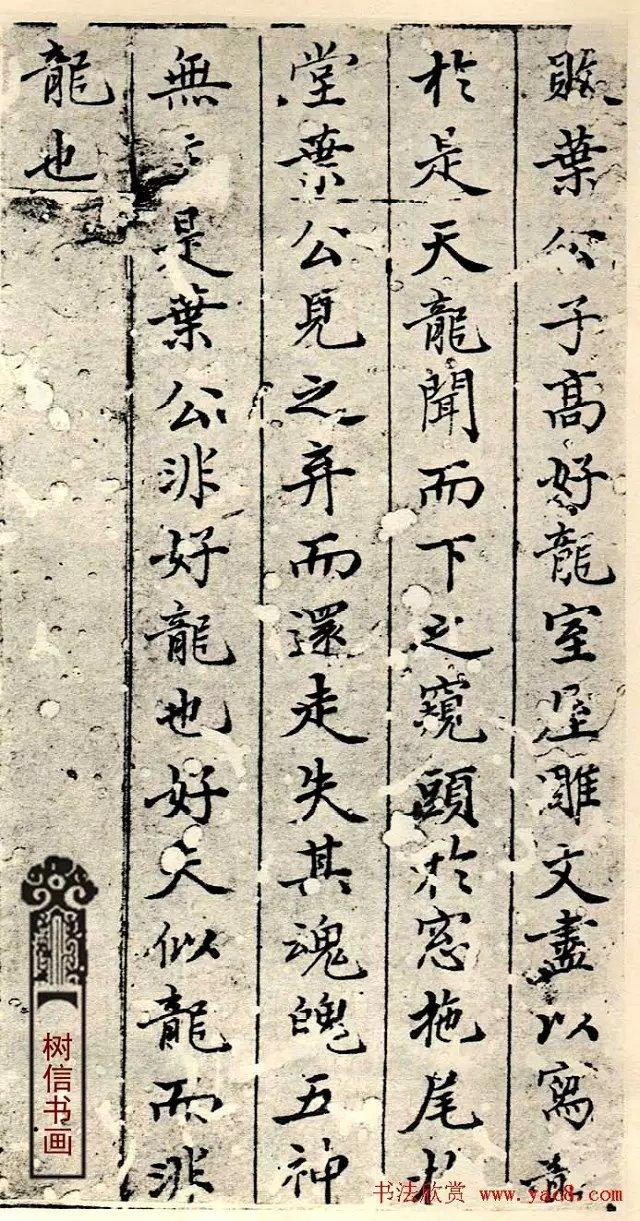 葉公子高好龍室屋雕文盡以寫龍
於是天龍聞而下之窺頭於窓拖尾於
堂葉公見之弃而還走失其魂魄五神
無是葉公非好龍也好夫似龍而非
龍也
树信书画
书法欣赏 www.yac8.com